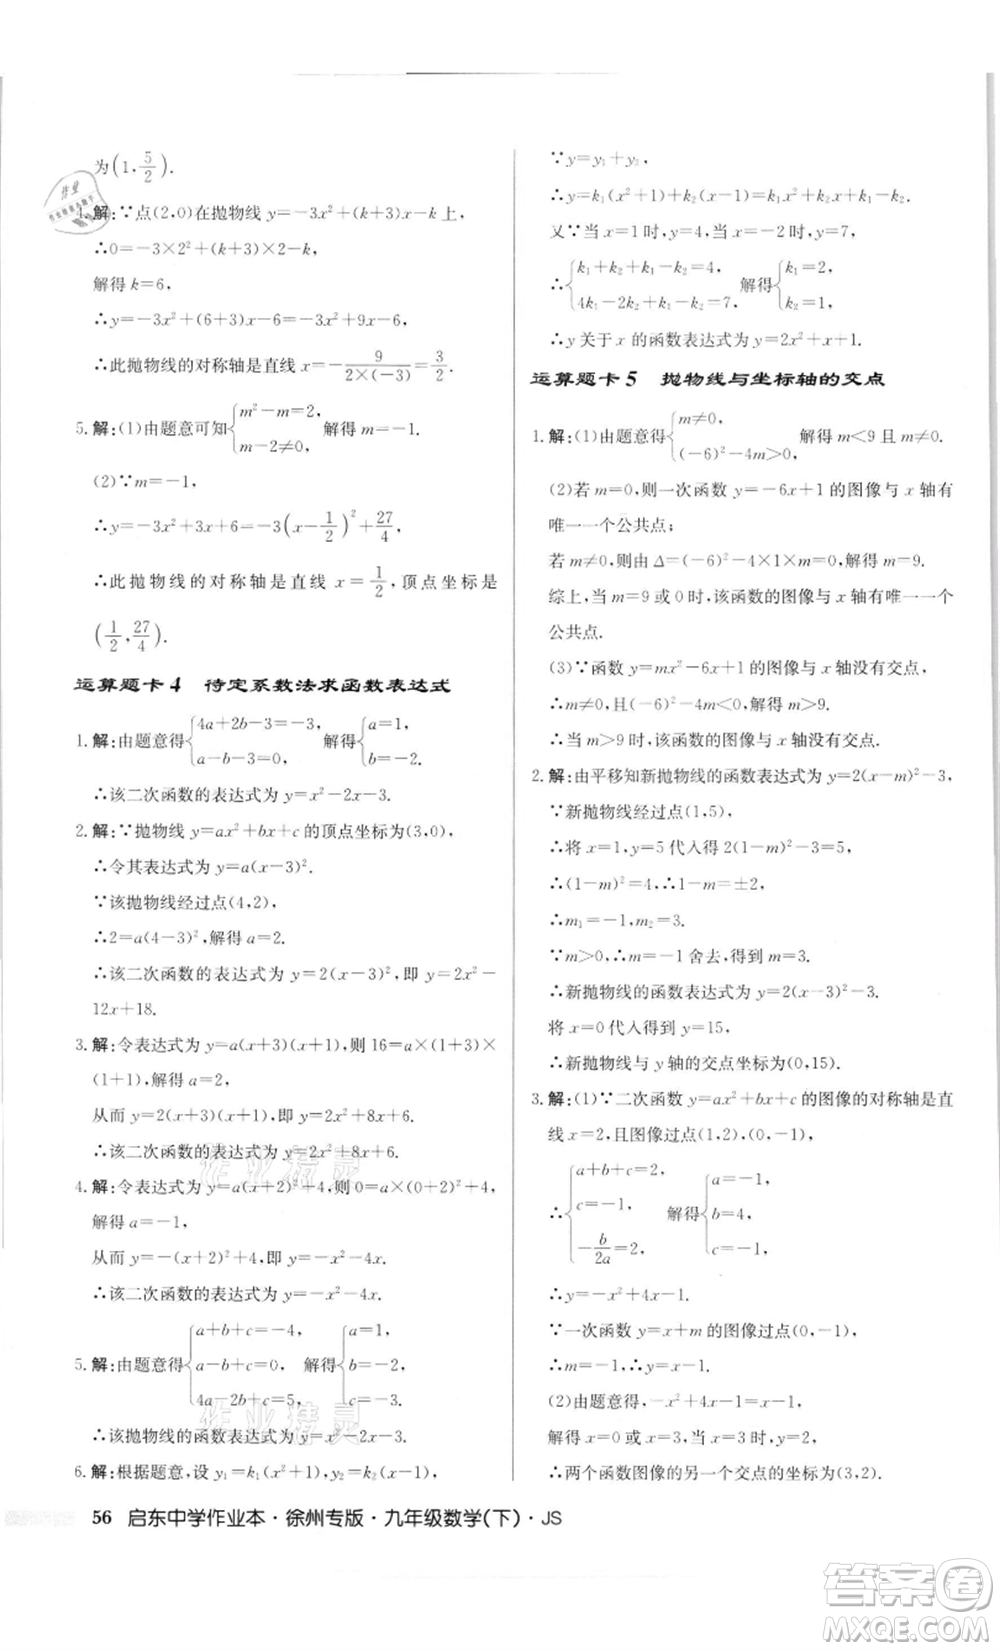 为(1, 5/2).
4. 解:∵点(2,0)在抛物线 y=-3x²+(k+3)x-k 上,
∴0=-3×2²+(k+3)×2-k,
解得 k=6,
∴y=-3x²+(6+3)x-6=-3x²+9x-6,
∴此抛物线的对称轴是直线 x=-9/(2×(-3))=3/2.
5. 解:(1)由题意可知{m²-m=2, m-2≠0, 解得 m=-1.
(2)∵m=-1,
∴y=-3x²+3x+6=-3(x-1/2)²+27/4,
∴此抛物线的对称轴是直线 x=1/2,顶点坐标是
(1/2, 27/4).
运算题卡 4 待定系数法求函数表达式
1. 解:由题意得{4a+2b-3=-3, a-b-3=0, 解得{a=1, b=-2.
∴该二次函数的表达式为 y=x²-2x-3.
2. 解:∵抛物线 y=ax²+bx+c 的顶点坐标为(3,0),
∴令其表达式为 y=a(x-3)².
∵该抛物线经过点(4,2),
∴2=a(4-3)²,解得 a=2.
∴该二次函数的表达式为 y=2(x-3)²,即 y=2x²-
12x+18.
3. 解:令表达式为 y=a(x+3)(x+1),则 16=a×(1+3)×
(1+1),解得 a=2,
从而 y=2(x+3)(x+1),即 y=2x²+8x+6.
∴该二次函数的表达式为 y=2x²+8x+6.
4. 解:令表达式为 y=a(x+2)²+4,则 0=a×(0+2)²+4,
解得 a=-1,
从而 y=-(x+2)²+4,即 y=-x²-4x.
∴该二次函数的表达式为 y=-x²-4x.
5. 解:由题意得{a+b+c=-4, a-b+c=0, 4a-2b+c=5, 解得{a=1, b=-2, c=-3.
∴该抛物线的函数表达式为 y=x²-2x-3.
6. 解:根据题意,设 y₁=k₁(x²+1),y₂=k₂(x-1).
∵y=y₁+y₂,
∴y=k₁(x²+1)+k₂(x-1)=k₁x²+k₂x+k₁-k₂.
又∵当 x=1 时,y=4,当 x=2 时,y=7,
∴{k₁+k₂+k₁-k₂=4, 4k₁-2k₂+k₁-k₂=7, 解得{k₁=2, k₂=1.
∴y 关于 x 的函数表达式为 y=2x²+x+1.
运算题卡 5 抛物线与坐标轴的交点
1. 解:(1)由题意得{m≠0, (-6)²-4m>0, 解得 m<9 且 m≠0.
(2)若 m=0,则一次函数 y=-6x+1 的图像与 x 轴有
唯一一个公共点;
若 m≠0,则由 Δ=(-6)²-4×1×m=0,解得 m=9.
综上,当 m=9 或 0 时,该函数的图像与 x 轴有唯一一个
公共点.
(3)∵函数 y=mx²-6x+1 的图像与 x 轴没有交点,
∴m≠0,且(-6)²-4m<0,解得 m>9.
∴当 m>9 时,该函数的图像与 x 轴没有交点.
2. 解:由平移知新抛物线的函数表达式为 y=2(x-m)²-3,
∵新抛物线经过点(1,5),
∴将 x=1,y=5 代入得 2(1-m)²-3=5,
∴(1-m)²=4,∴1-m=±2,
∴m₁=-1,m₂=3.
∵m>0,∴m=-1 舍去,得到 m=3.
∴新抛物线的函数表达式为 y=2(x-3)²-3.
将 x=0 代入得到 y=15,
∴新抛物线与 y 轴的交点坐标为(0,15).
3. 解:(1)∵二次函数 y=ax²+bx+c 的图像的对称轴是直
线 x=2,且图像过点(1,2),(0,-1),
∴{a+b+c=2, c=-1, -b/2a=2, 解得{a=-1, b=4, c=-1,
∴y=-x²+4x-1.
∵一次函数 y=x+m 的图像过点(0,-1),
∴m=-1,∴y=x-1.
(2)由题意得,-x²+4x-1=x-1,
解得 x=0 或 x=3,当 x=3 时,y=3-1=2,
∴两个函数图像的另一个交点坐标为(3,2).
56 启东中学作业本·徐州专版·九年级数学(下)·JS
作业精灵
作业精灵
答案卷
MXQE.COM